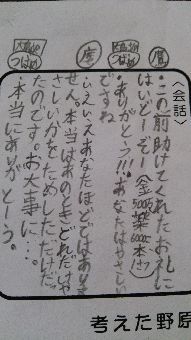 〈会話〉
鷹
・この前助けてくれたお礼に
はいどーぞー(金500万薬6000本!?)
大型のつばめ
・ありがとう!!!あなたはやさしい
ですね
鷹
・いえいえあなたほどではありま
せん。本当はあのときどれだけや
さしいかをためしただけだっ
たのです。お大事に…。
大型のつばめ
・本当にありがとーう。
考えた野原